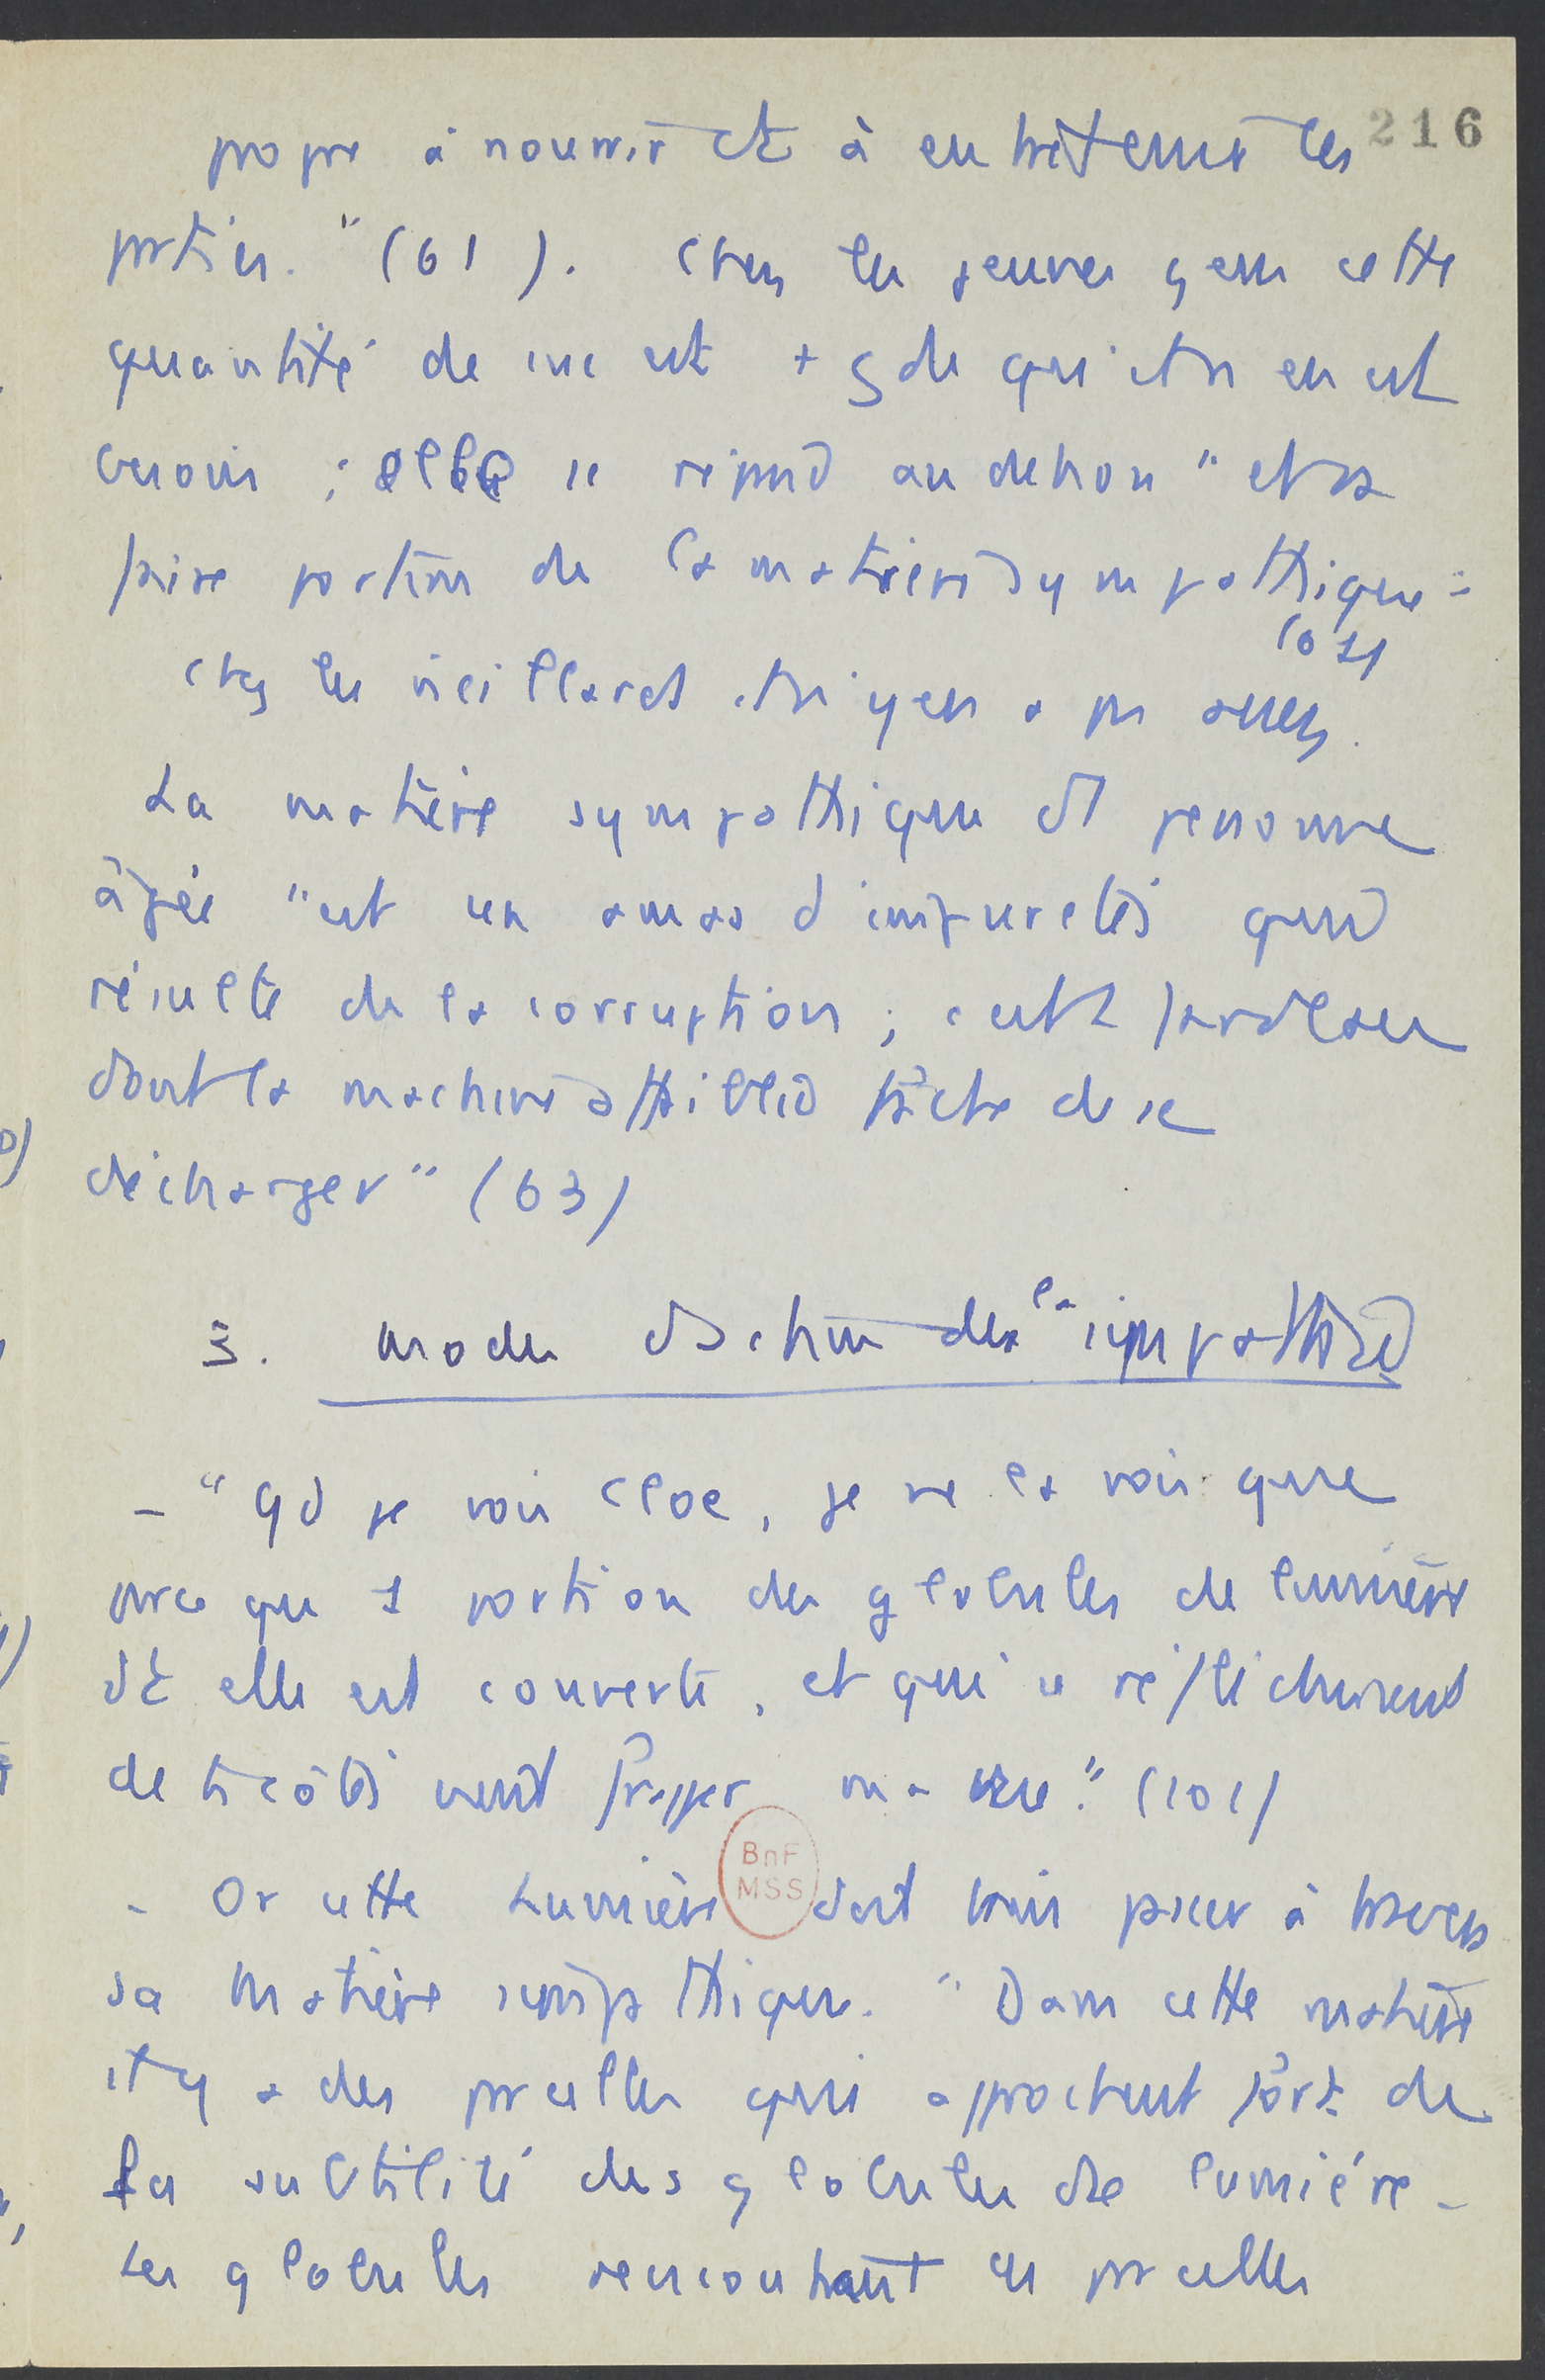 216
propre à nourrir et à entretenir les
parties." (61). Chez les jeunes gens cette
quantité de suc est + gde qu'il n'en est
besoin ; elle se répand au dehors "et va
faire portion de la matière sympathique"
(61)
chez les vieillards il n'y en a pas assez.
La matière sympathique d'1 personne
âgée "est un amas d'impuretés qui
résulte de la corruption ; c'est 1 fardeau
dont la machine affaiblie tâche de se
décharger" (63)
3. modes d'action de la sympathie
- "Qd je vois Cloé, je ne la vois que
parce que 1 portion des globules de lumière
dt elle est couverte, et qui se réfléchissent
de ts côtés vient frapper ma vue." (101)
BnF
MSS
- Or cette Lumière doit bien passer à travers
sa matière sympathique. "Dans cette matière
il y a des parcelles qui approchent fort de
la subtilité des globules de lumière -
Les globules rencontrant ces parcelles